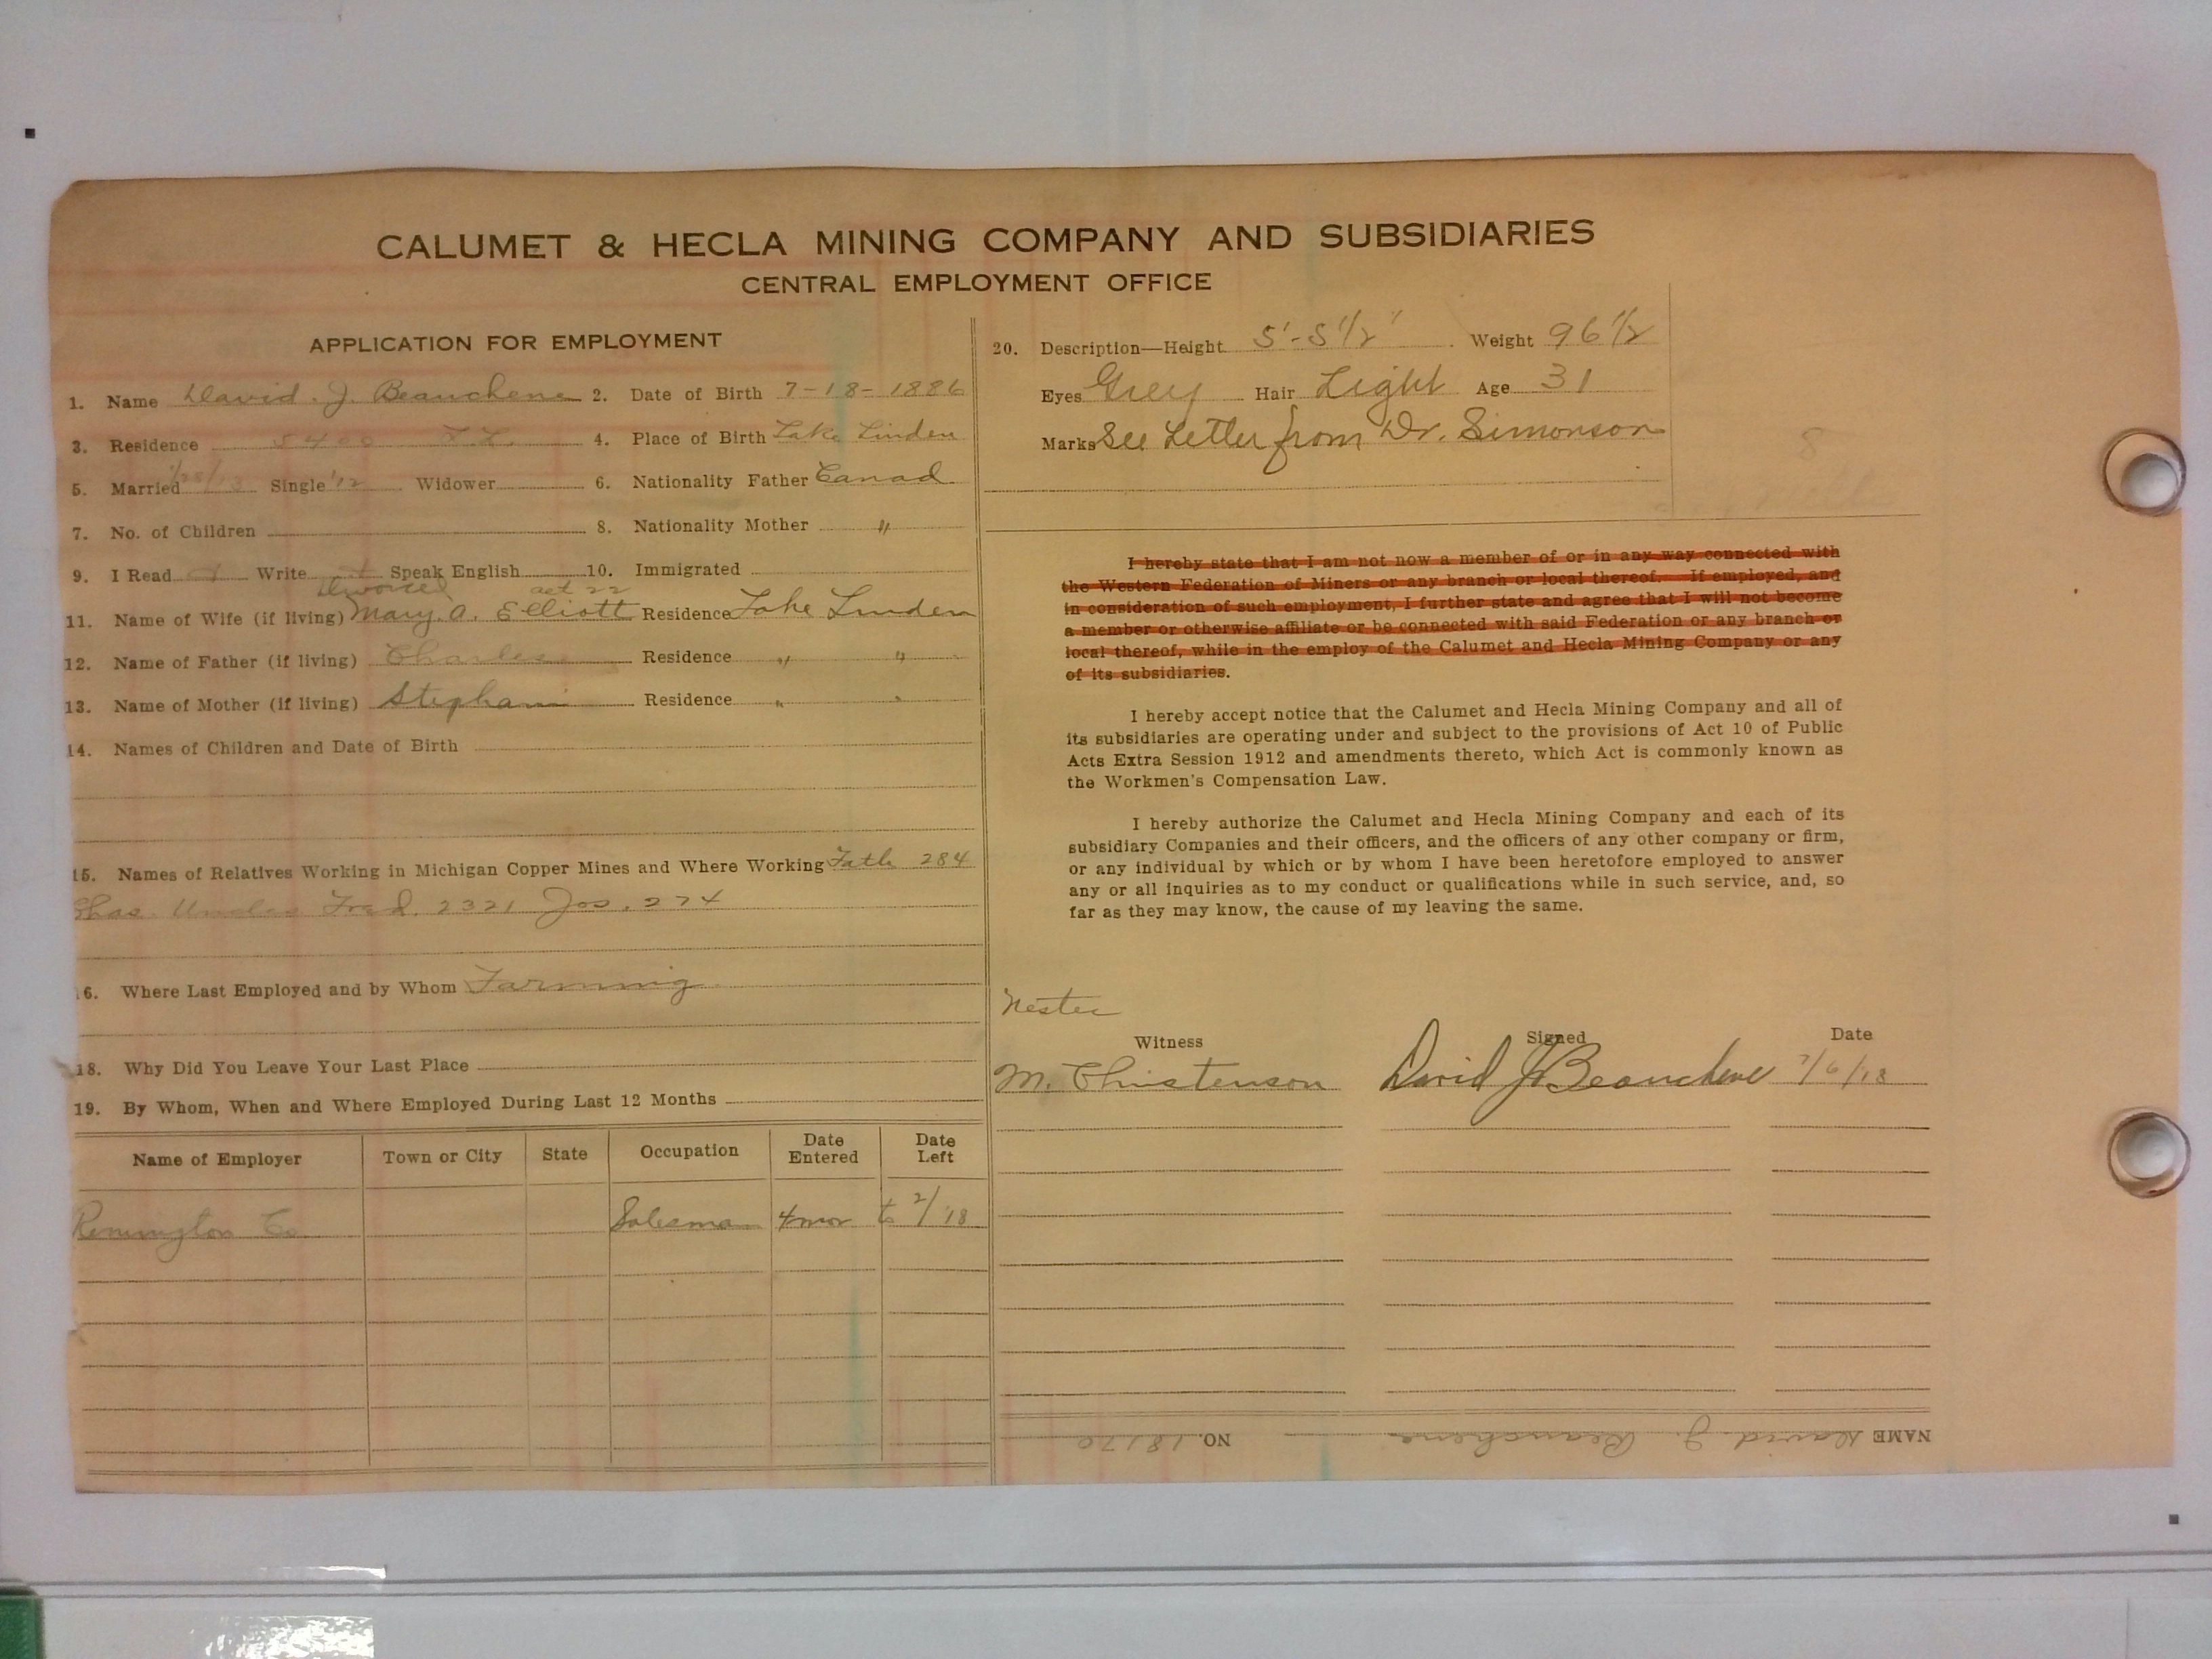 CALUMET & HECLA MINING COMPANY AND SUBSIDIARIES
CENTRAL EMPLOYMENT OFFICE
APPLICATION FOR EMPLOYMENT
1. Name David. J. Beauchene 2. Date of Birth 7-18-1886
3. Residence 5400 L.L. 4. Place of Birth Lake Linden
5. Married Single '12 Widower 6. Nationality Father Canad
7. No. of Children 8. Nationality Mother "
9. I Read Write Speak English 10. Immigrated
Divorced Oct 22
11. Name of Wife (if living) Mary. A. Elliott Residence Lake Linden
12. Name of Father (if living) Charles Residence " "
13. Name of Mother (if living) Stephani Residence " "
14. Names of Children and Date of Birth
15. Names of Relatives Working in Michigan Copper Mines and Where Working Fath 284
Chas. Uncles Fred. 2321 Jos. 274
16. Where Last Employed and by Whom Farming
18. Why Did You Leave Your Last Place
19. By Whom, When and Where Employed During Last 12 Months
Name of Employer Town or City State Occupation Date Entered Date Left
Remington Co. Salesman 4 mos to 2/'18
20. Description—Height 5'-5 1/2" Weight 96 1/2
Eyes Grey Hair Light Age 31
Marks See Letter from Dr. Simonson
8
I hereby state that I am not now a member of or in any way connected with
the Western Federation of Miners or any branch or local thereof. If employed, and
in consideration of such employment, I further state and agree that I will not become
a member or otherwise affiliate or be connected with said Federation or any branch or
local thereof, while in the employ of the Calumet and Hecla Mining Company or any
of its subsidiaries.
I hereby accept notice that the Calumet and Hecla Mining Company and all of
its subsidiaries are operating under and subject to the provisions of Act 10 of Public
Acts Extra Session 1912 and amendments thereto, which Act is commonly known as
the Workmen's Compensation Law.
I hereby authorize the Calumet and Hecla Mining Company and each of its
subsidiary Companies and their officers, and the officers of any other company or firm,
or any individual by which or by whom I have been heretofore employed to answer
any or all inquiries as to my conduct or qualifications while in such service, and, so
far as they may know, the cause of my leaving the same.
Nester
Witness Signed Date
M. Christenson David J. Beauchene 7/6/18
NAME David. J. Beauchene NO. 18170